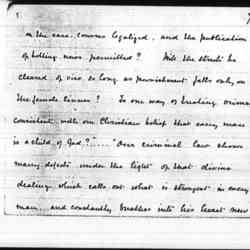 on the race-courses legalized, and the publication
of betting news permitted? Will the streets be
cleared of vice so long as punishment falls only on
the female sinner? Is our way of treating crime
consistent with our Christian belief that every man
is a child of God? ..... Our criminal law shows
many defects under the light of that divine
dealing which calls out what is strongest in every
man, and constantly breathes into his heart new